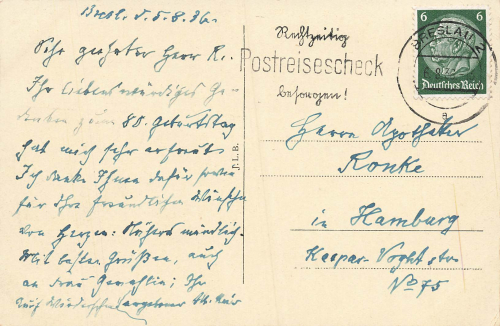 Bresl. d. 5.8.36.
Sehr geehrter Herr R.
Ihr liebenswürdiges Ge-
denken zum 80. Geburtstag
hat mich sehr erfreut.
Ich danke Ihnen dafür, sowie
für Ihre freundlichen Wünsche
von Herzen. Näheres mündlich.
Mit besten Grüßen, auch
an Frau Gemahlin; Ihr
Auf Wiedersehen
J. L. B.
Rechtzeitig
Postreisescheck
besorgen!
BRESLAU
6 6
Deutsches Reich
a
Herrn Apotheker
Ronke
in Hamburg
Kaspar-Voght str.
No 75